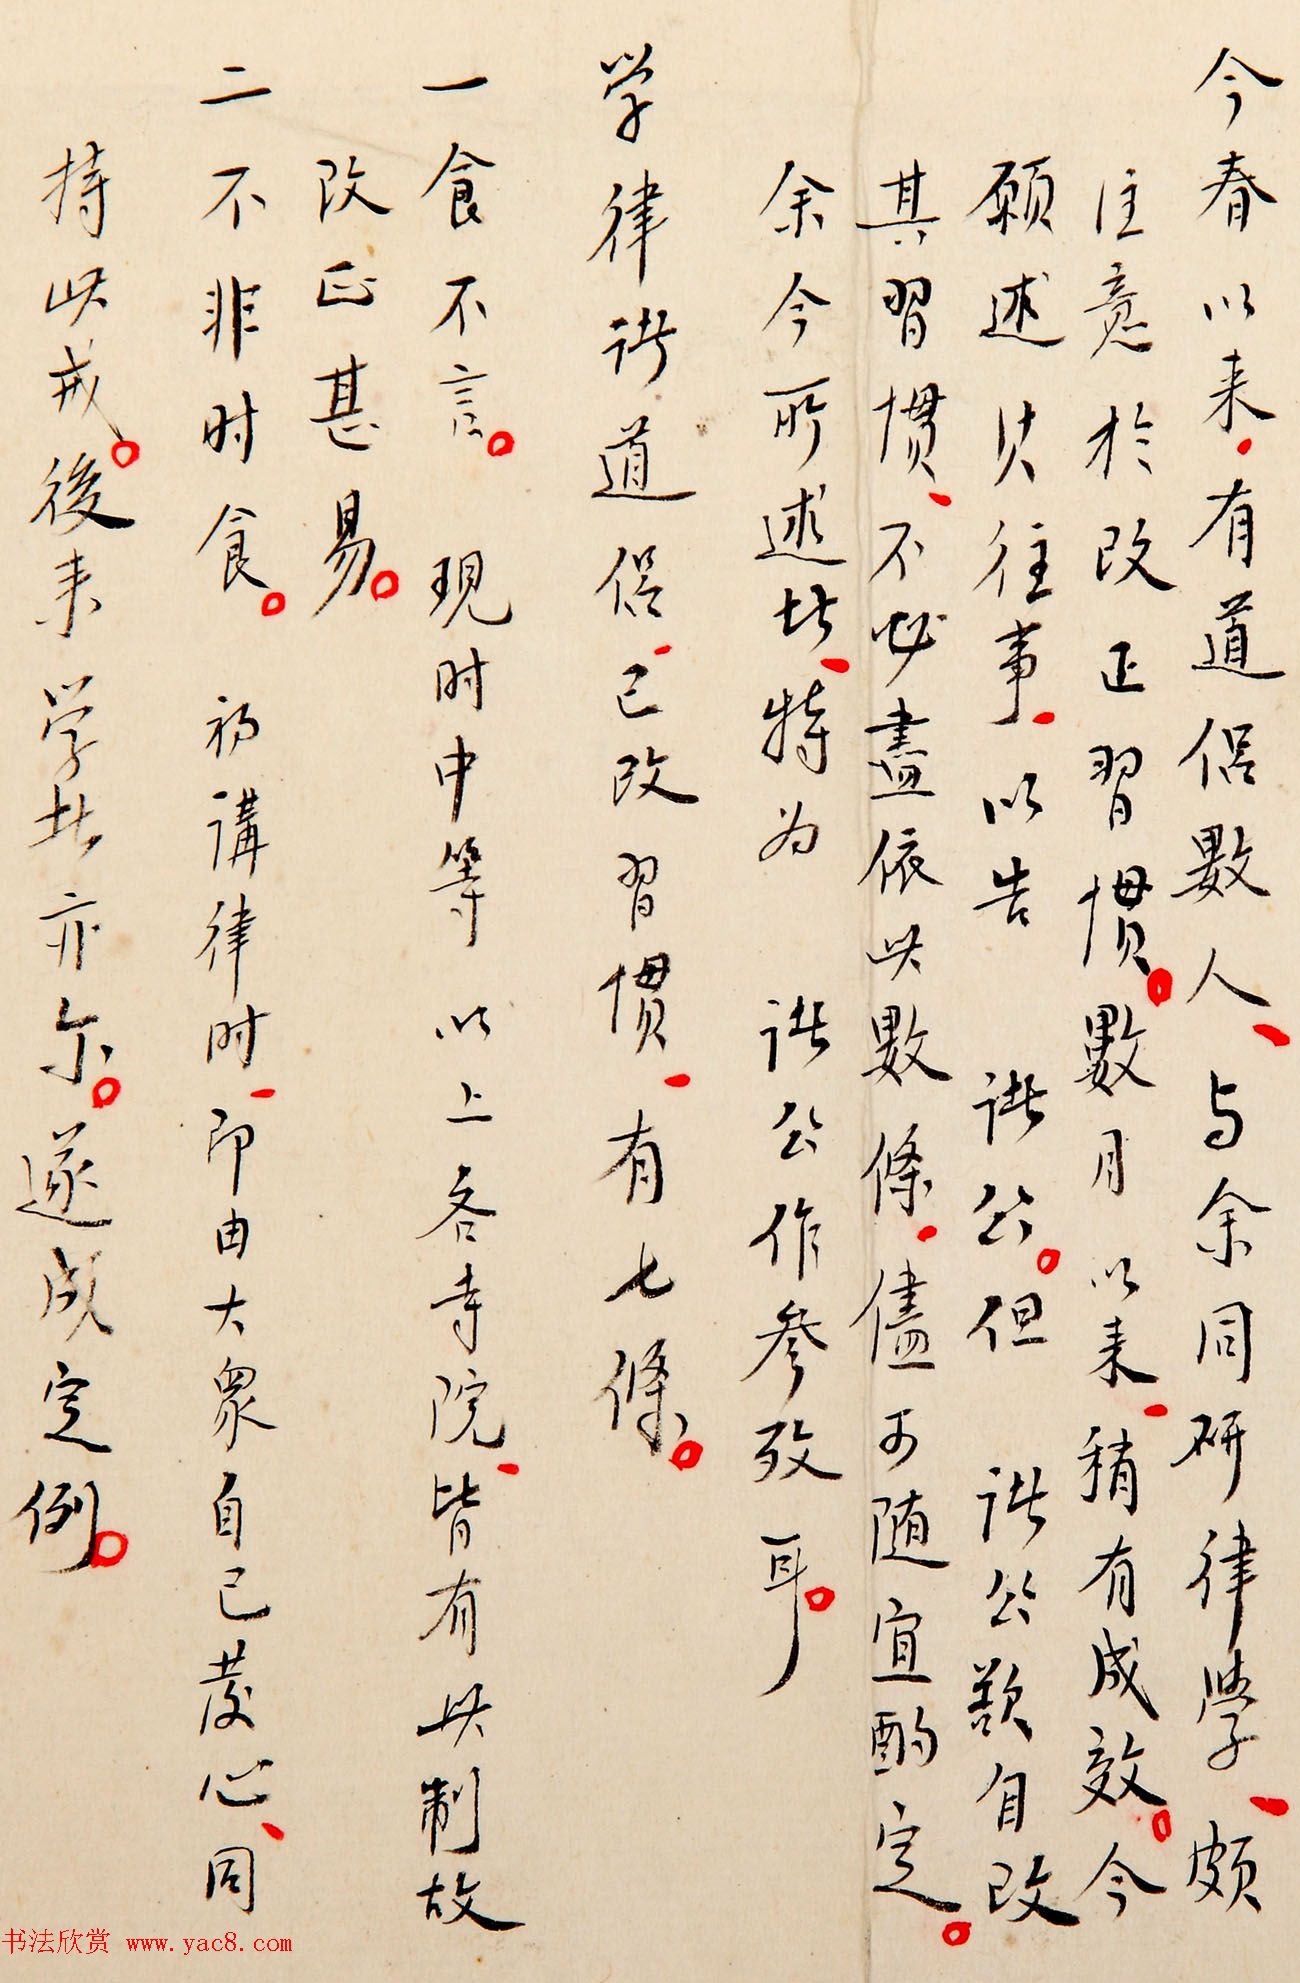 今春以来、有道侣數人、与余同研律學、頗
注意於改正習慣。數月以来、稍有成效。今
願述其往事、以告 諸公。但 諸公欲自改
其習慣、不必盡依此數條、儘可随宜酌定。
余今所述者、特为 諸公作參攷耳。
学律諸道侣、已改習慣、有七條。
一食不言。現时中等以上各寺院、皆有此制故
改正甚易。
二不非时食。初講律时、即由大眾自己發心、同
持此戒。後来学者亦尔。遂成定例。
书法欣赏 www.yac8.com